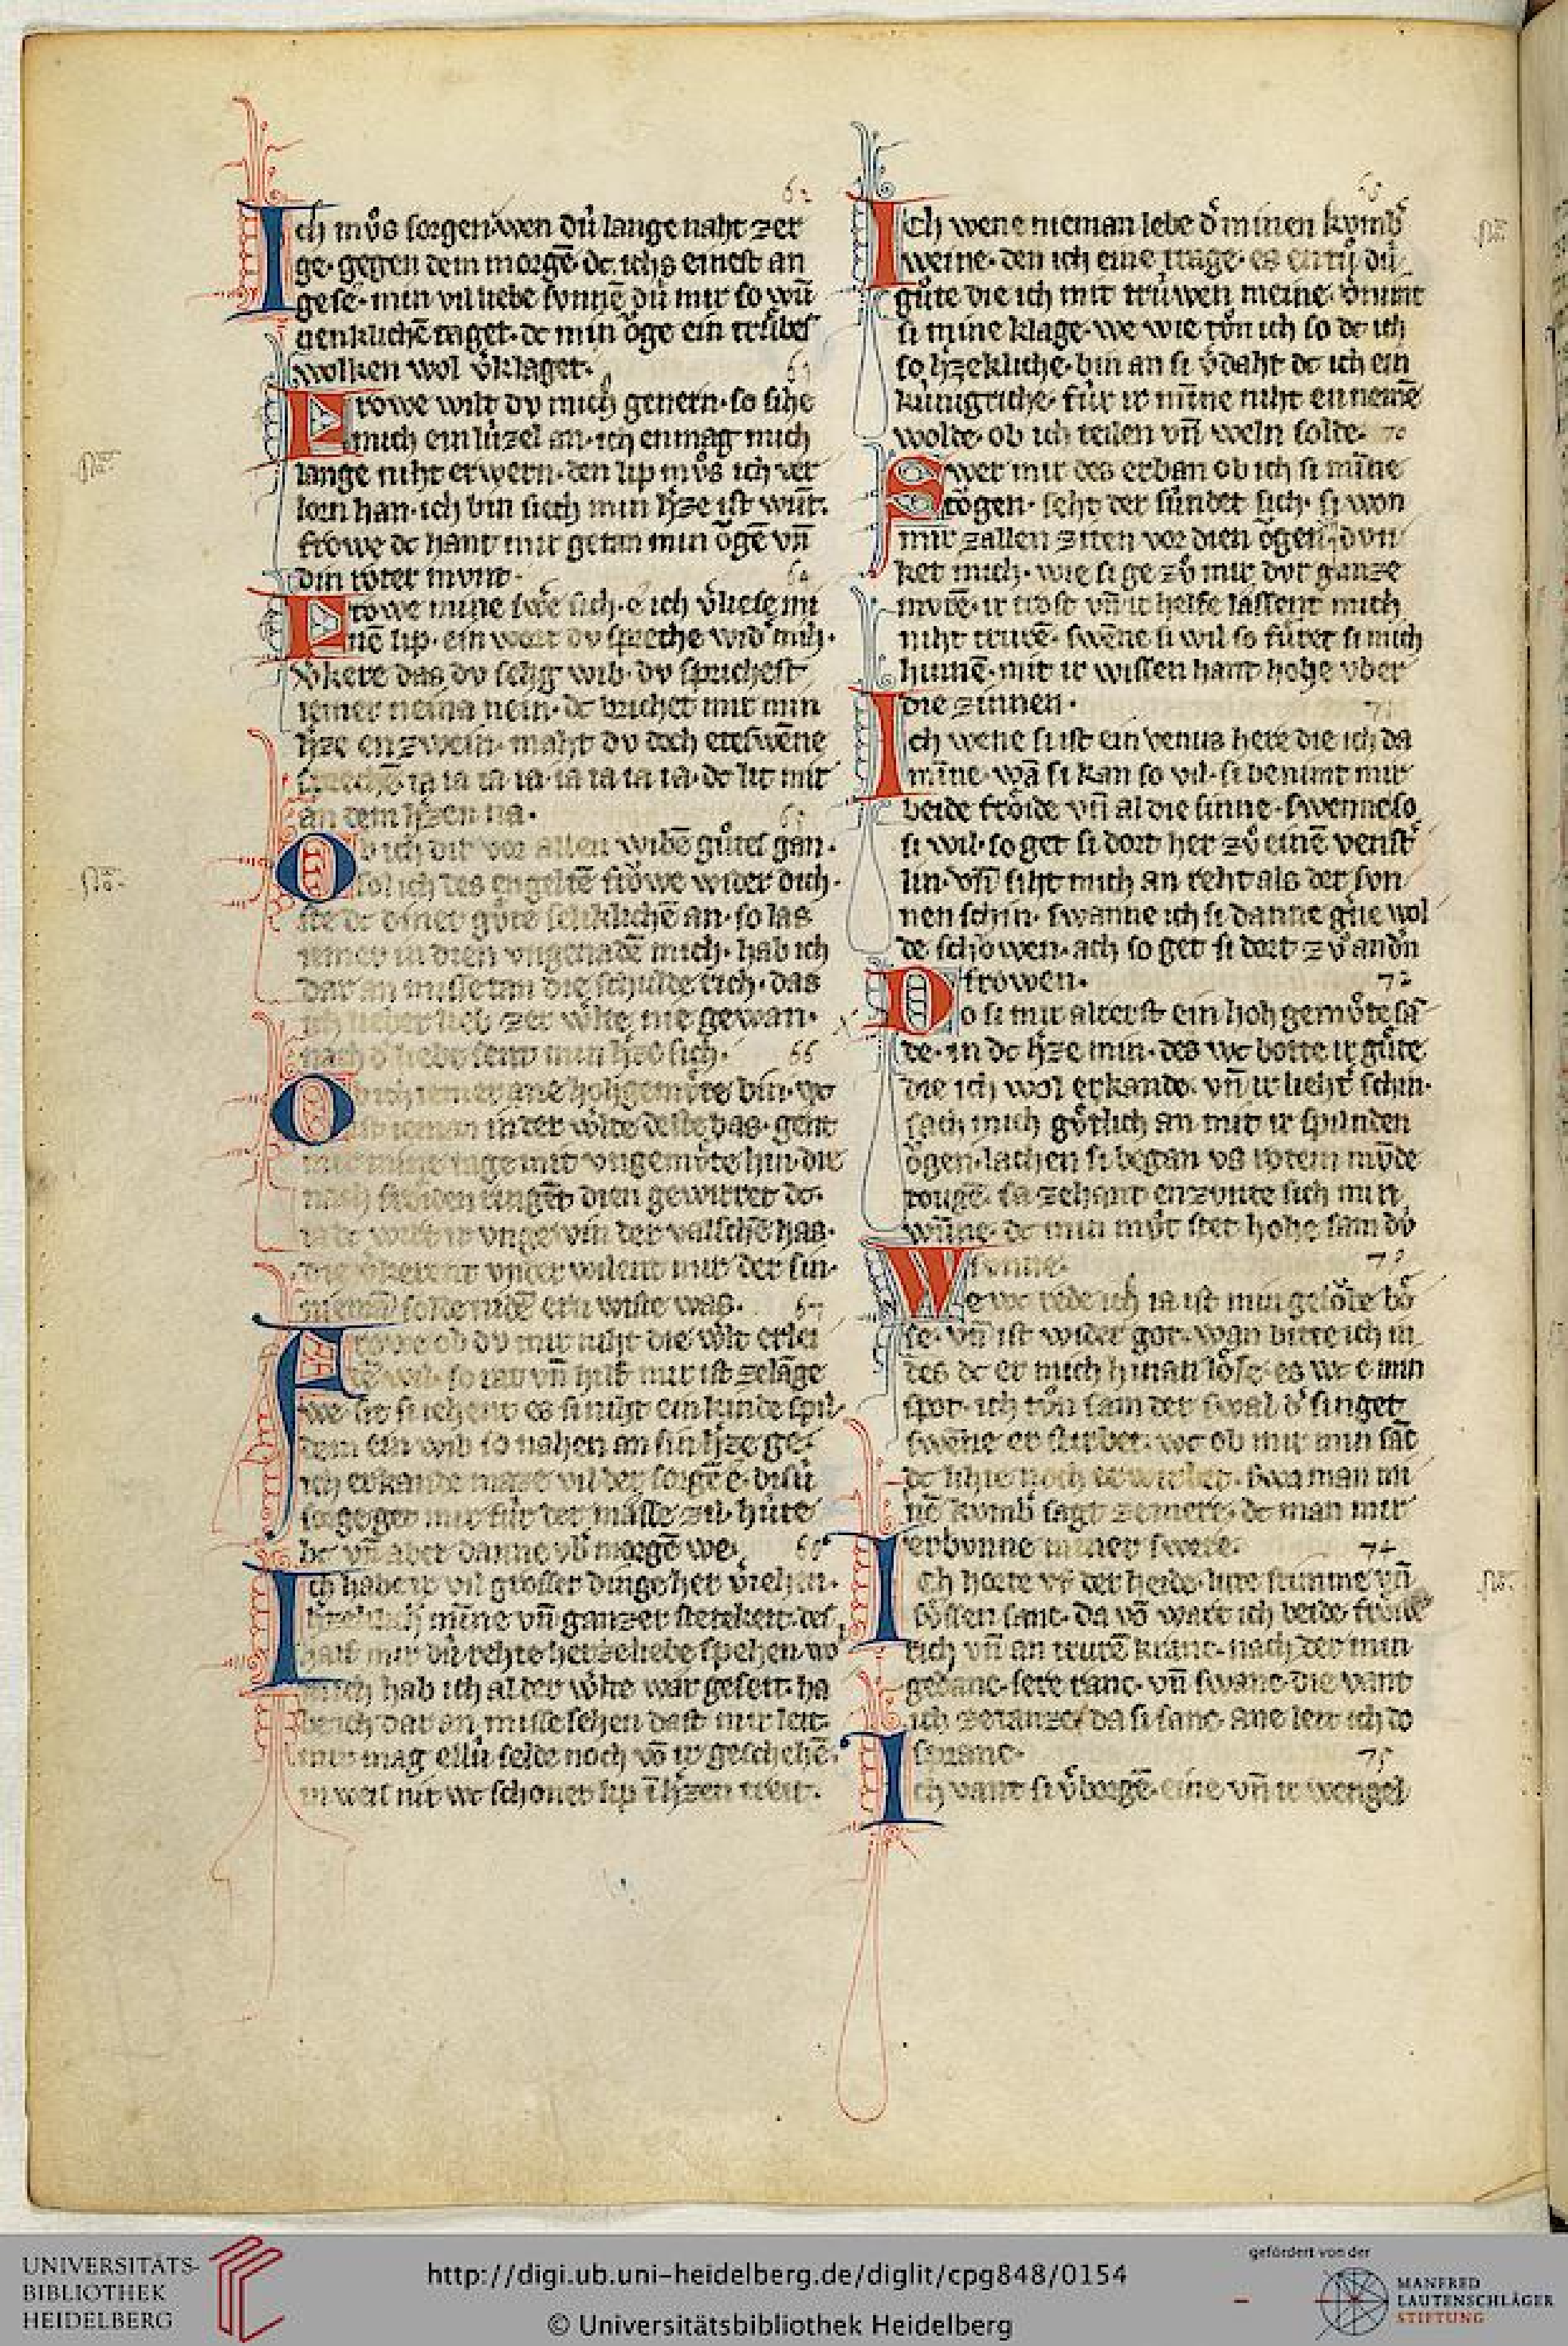 62
Ich mvͦs sorgen wen dv́ lange naht zer
ge· gegen dem morgē· dc ichs einest an
gese· min vil liebe sunnē dv́ mir so wū
nenklichē taget· dc min ǒge ein trv́bes
wolken wol v̓klaget·
63
Frowe wilt dv mich genern· so sihe
mich ein lúzel an· ich enmag mich
lange niht erwern· den lip mvͦs ich ver
lorn han· ich bin siech min h̓ze ist wūt·
frowe dc hant mir getan min ǒgē vn̄
din roter mvnt·
64
Frowe mine swe sich· e ich v̓liese mi
nē lip· ein wort dv spreche wid̓ mih·
v̓kere das dv selig wib· dv sprichest
iemer neina nein· dc brichet mir min
h̓ze enzwein· maht dv doch eteswēne
sprechē ia ia ia ia ia ia ia ia· dc lit mir
an dem h̓zen na·
65
Ob ich dir vor allen wibē gůtes gan·
sol ich des engeltē frowe wider dich·
so las
iemer in dien vngenadē mich· hab ich
dar an missetan die schulde rich· das
ich lieber lieb zer w̓lte nie gewan·
nach d̓ liebv sent min h̓ze sich· 66
Ob ich iemer ane hohgemv̊te bin· wc
ist ieman in der w̓lte deste bas· gent
mir mine tage mit vngemv̊te hin· die
nach frǒiden ringēt dien gewirret dc·
der valschē has·
die v̓kerent vnder wilent mir der sin·
niemā solte nidē ern wiste was· 67
Frowe ob dv mir niht die w̓lt erlei
wil· so rat vn̄ hilf mir ist zelāge
we· sit si iehent es si niht ein kinde spil·
dem ein wib so nahen an sin h̓ze ge·
ich erkande masse vil der sorgē e· disv́
sorge get mir fúr der masse zil· hv́te
bc vn̄ aber danne vb̓ morgē we· 68
Ich habe ir vil grosser dinge her v̓iehen·
h̓zeklich mīne vn̄ ganzer stetekeit· des
half mir dv́ rehte herzeliebe spehen· wc
misch hab ich al der w̓lte war geseit· ha
be ich dar an misse sehen dast mir leit·
mir mag ellv́ selde noch vō ir geschehē·
in weis nit wc schoner lip ī h̓zen treit·
Ich wene nieman lebe d̓ minen kvmb̓
weine· den ich eine trage· es entv̊ dv́
gůte die ich mit trúwen meine· v̓nimt
si mine klage· we wie tv̊n ich so dc ich
so h̓zekliche· bin an si v̓daht dc ich ein
kúnigriche· fúr ir mīne niht en nemē
wolde· ob ich teilen vn̄ weln solde· 70
Swer mir des erban ob ich si mīne
tǒgen· seht der súndet sich· si won
mir zallen ziten vor dien ǒgen dvn
ket mich· wie si ge zv̊ mir dvr ganze
mvrē· ir trost vn̄ ir helfe lassent mich
niht trurē· swēne si wil so fv́ret si mich
hinnē· mit ir wissen hant hohe vber
die zinnen·
71
Ich wene si ist ein venus here die ich da
mīne· wā si kan so vil· si benimt mir
beide frǒide vn̄ al die sinne· swenne so
si wil· so get si dort her zv̊ einē venst̓
lin· vn̄ siht mich an reht als der svn
nen schin· swanne ich si danne g̓ne wol
de schǒwen· ach so get si dort zv̊ and̓n
frowen·
72
Do si mir alrerst ein hoh gemv̊te sā
de· in dc h̓ze min· des wc botte ir gůte
die ich wol erkande· vn̄ ir lieht̓ schin·
sach mich gv̊tlich an mit ir spilnden
ǒgen· lachen si began vs rotem mvͦde
tougē· sa zehant enzvnte sich min
wūne· dc min mv̊t stet hohe sam dv́
svnne·
73
We wc rede ich ia ist min gelǒbe bǒ
se· vn̄ ist wider got· wan bitte ich in
des dc er mich hinan lǒse· es wc e min
spot· ich tv̊n sam der swal d̓ singet
swēne er stirbet· wc ob mir min sāc
dc lihte noch erwirbet· swa man mi
nē kvmb̓ sagt zemere· dc man mir
erbvnne miner swere· 74
Ich horte vf der heide· lute stimme vn̄
sv̊ssen sanc· da vō wart ich beide· frǒide
rich vn̄ an trurē kranc· nach der min
gedanc· sere ranc· vn̄ swanc· die vant
ich zetanze· da si sanc· ane leit ich do
spranc·
75
Ich vant si v̓borgē· eine vn̄ ir wengel
UNIVERSITÄTS-
BIBLIOTHEK
HEIDELBERG
http://digi.ub.uni-heidelberg.de/diglit/cpg848/0154
© Universitätsbibliothek Heidelberg
gefördert von der
MANFRED
LAUTENSCHLÄGER
STIFTUNG